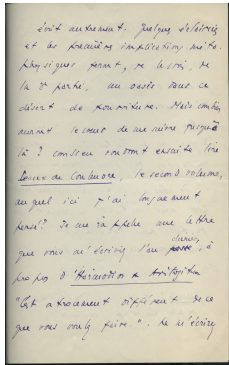 écrit autrement. Quelques éclaircies
et les premières implications méta-
physiques feront, je le crois, de
la 2e partie, un oasis dans ce
désert de pourriture. Mais combien
auront le cœur de me suivre jusque
là ? combien voudront ensuite lire
le second volume,
auquel ici j'ai longuement
pensé ? Je me rappelle une lettre
que vous m'écriviez l'an dernier, à
propos d'Harmodios & Aristogiton
"C'est atrocement différent de ce
que vous voulez faire". Je n'écrirai